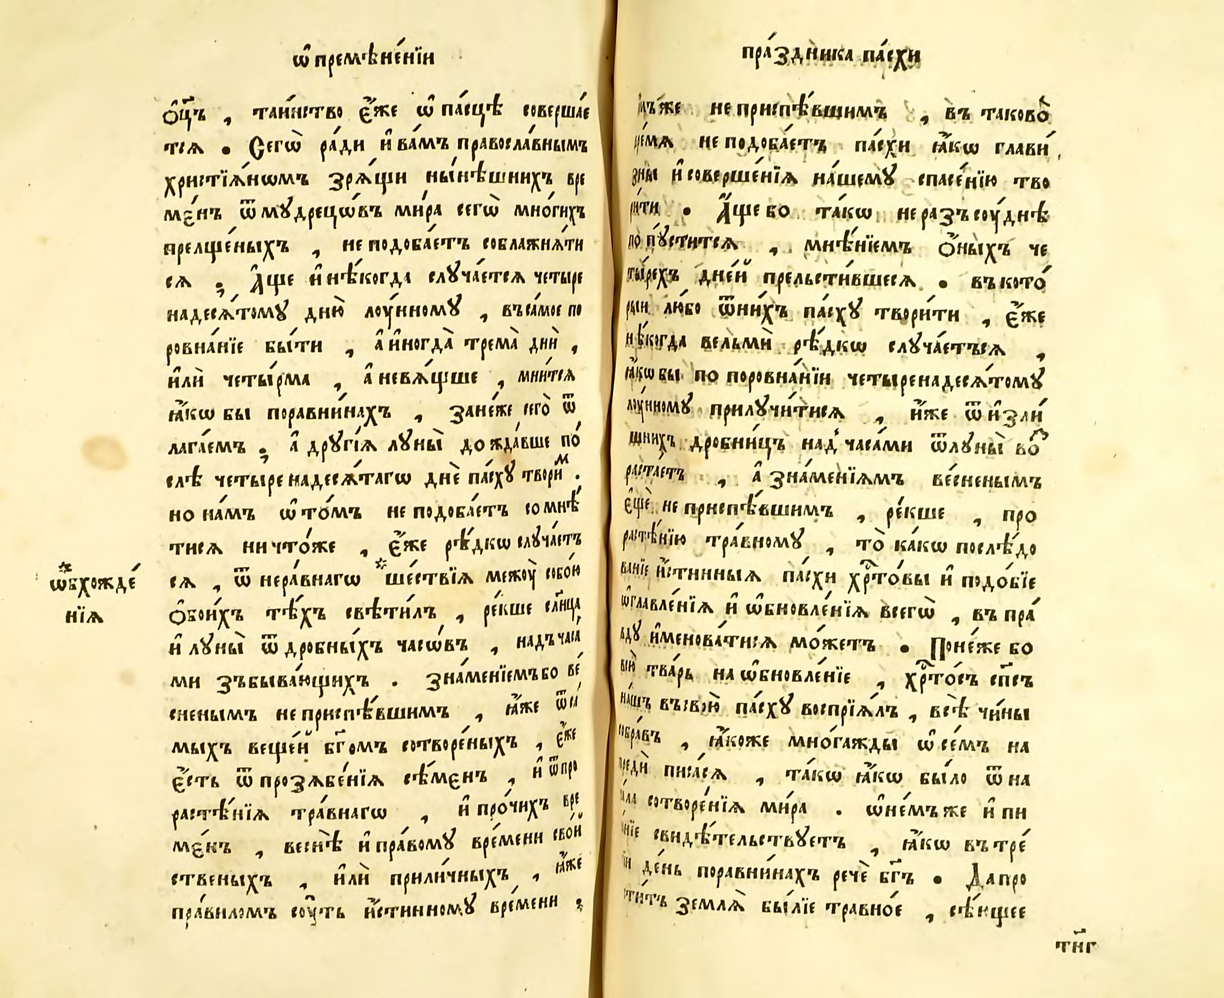 ѡ҆ премѣне́нїи
ѻ҆ц҃ъ , таи́нство є҆́же ѡ҆ па́сцѣ соверша́е
тсѧ . Сегѡ̀ ра́ди и҆ ва́мъ правосла́внымъ
христїѧ́нѡмъ зрѧ́щи ны́нѣшнихъ вре
ме́нъ ѿ мудрецѡ́въ ми́ра сегѡ̀ мно́гихъ
прелще́ныхъ , не подоба́етъ соблажнѧ́ти
сѧ ; А҆́ще и҆ нѣ́когда случа́етсѧ четыре
надесѧ́тому дню̀ лоу́нному , въ са́мое по
ровна́нїе бы́ти , а҆ и҆ногда̀ трема̀ дни̂ ,
и҆лѝ четы́рма , а҆ невѧ́щше , мни́тсѧ
ꙗ҆́кѡ бы поравни́нахъ , зане́же сего̀ ѿ
лага́емъ ; а҆ другі́ѧ луны̀ дожда́вше по́
слѣ четыренадесѧ́тагѡ днѐ па́сху твори́м .
но на́мъ ѡ҆ то́мъ не подоба́етъ сомнѣ
тисѧ ничто́же , є҆́же рѣ́дкѡ случа́етъ
сѧ , ѿ нера́внагѡ * ше́ствїѧ межоу̀ собо́ю
ѻ҆бои́хъ тѣ́хъ свѣти́лъ , ре́кше сл҃нца
и҆ луны̀ ѿ дро́бныхъ часѡ́въ , надъ часа́
ми зъбыва́ющихъ . зна́менїемъ бо ве́
сненымъ не приспѣ́вшимъ , ꙗ҆́же ѿ са́
мыхъ веще́й бг҃омъ сотворе́ныхъ , є҆́же
є҆́сть ѿ прозѧбе́нїѧ сѣ́менъ , и҆ ѿ про
расте́нїѧ тра́внагѡ , и҆ про́чихъ вре
ме́нъ , веснѣ̀ и҆ пра́вому вре́мени сво́й
ственыхъ , и҆лѝ прили́чныхъ , ꙗ҆́же
пра́виломъ соу́ть и҆́стинному вре́мени ;
* ѡ҆бхожде́
нїѧ
пра́здника па́схи
не приспѣ́вшимъ , въ таково̀
не подоба́етъ па́схи ꙗ҆́кѡ глави́
зны̀ и҆ соверше́нїѧ на́шему спасе́нїю тво
ри́ти . А҆́ще бо та́кѡ не разъсоу́днѣ
попу́ститсѧ , мнѣ́нїемъ ѻ҆́ныхъ че
ты́рехъ дне́й прельсти́вшесѧ . въ кото́
рыи лю́бо ѿ ни́хъ па́сху твори́ти , є҆́же
нѣ́когда вельмѝ рѣ́дкѡ случа́етьсѧ ,
ꙗ҆́кѡ бы по поровна́нїи четыренадесѧ́тому
лоу́нному прилучи́тисѧ , и҆́же ѿ и҆зли́
шнихъ дробни́цъ над̾ часа́ми ѿ луны̀ во
раста́етъ , а҆ зна́менїѧмъ ве́сненымъ
є҆щѐ не приспѣ́вшимъ , ре́кше , про
расте́нїю тра́вному , то̀ ка́кѡ послѣ́до
ва́нїе и҆́стинныѧ па́схи хр҃то́вы и҆ подо́бїе
ѡ҆главле́нїѧ и҆ ѡ҆бновле́нїѧ всегѡ̀ , въ пра́
вду и҆менова́тисѧ мо́жетъ . Поне́же бо
всю̀ тва́рь на ѡ҆бновле́нїе , хр҃то́съ сп҃съ
на́шъ въ свою̀ па́сху воспрїѧ́лъ , всѣ̀ чи́ны
собра́въ , ꙗ҆́коже мно́гажды ѡ҆ се́мъ на
предѝ писа́сѧ , та́кѡ ꙗ҆́кѡ бы́ло ѿ на
ча́ла сотворе́нїѧ ми́ра . ѡ҆ не́мъ же и҆ пи
са́нїе свидѣ́тельствуетъ , ꙗ҆́кѡ въ тре́
тїи де́нь поравни́нахъ речѐ бг҃ъ . Да про
расти́тъ землѧ̀ бы́лїе травно́е , сѣ́ющее
тн҃г